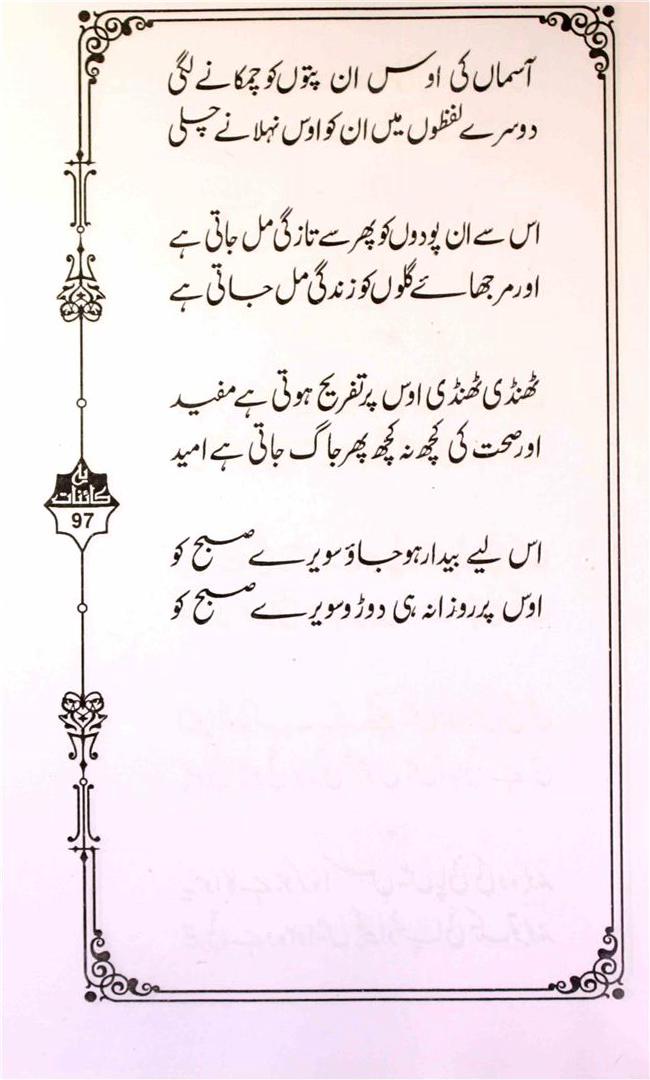 آسماں کی اوس ان پتوں کو چمکانے لگی
دوسرے لفظوں میں ان کو اوس نہلانے چلی
اس سے ان پودوں کو پھر سے تازگی مل جاتی ہے
اور مرجھائے گلوں کو زندگی مل جاتی ہے
ٹھنڈی ٹھنڈی اوس پر تفریح ہوتی ہے مفید
اور صحت کی کچھ نہ کچھ پھر جاگ جاتی ہے امید
اس لیے بیدار ہو جاؤ سویرے صبح کو
اوس پر روزانہ ہی دوڑو سویرے صبح کو
یہ
کائنات
97